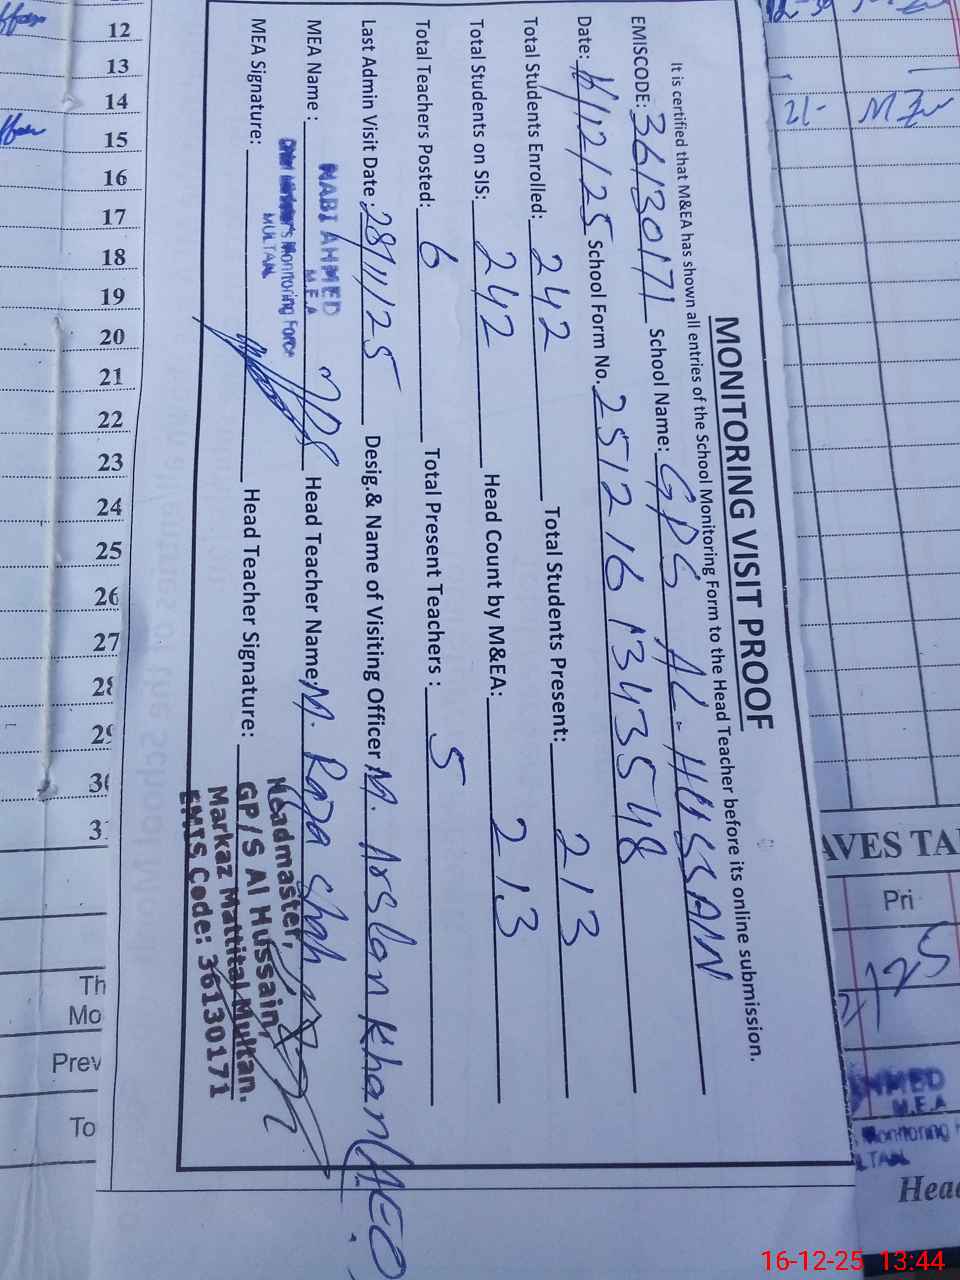 MONITORING VISIT PROOF
It is certified that M&EA has shown all entries of the School Monitoring Form to the Head Teacher before its online submission.
EMISCODE: 36130171 School Name: GPS AL-HUSSAIN
Date: /12/25 School Form No. 2512161343548
Total Students Enrolled: 242 Total Students Present: 213
Total Students on SIS: 242 Head Count by M&EA: 213
Total Teachers Posted: 6 Total Present Teachers : 5
Last Admin Visit Date : 28/11/25 Desig.& Name of Visiting Officer: M. Arslan Khan (AEO)
MEA Name : Head Teacher Name: M. Raza Shah
NABI AHMED
M.E.A
Chief Minister's Monitoring Force
MULTAN
MEA Signature: Head Teacher Signature:
Headmaster,
GP/S Al Hussain,
Markaz Mattital Multan.
EMIS Code: 36130171
12
13
14
15
16
17
18
19
20
21
22
23
24
25
26
27
28
29
30
31
Th
Mo
Prev
To
AVES TA
Pri
/25
HMED
M.E.A
Monitoring
LTAN
Head
16-12-25 13:44